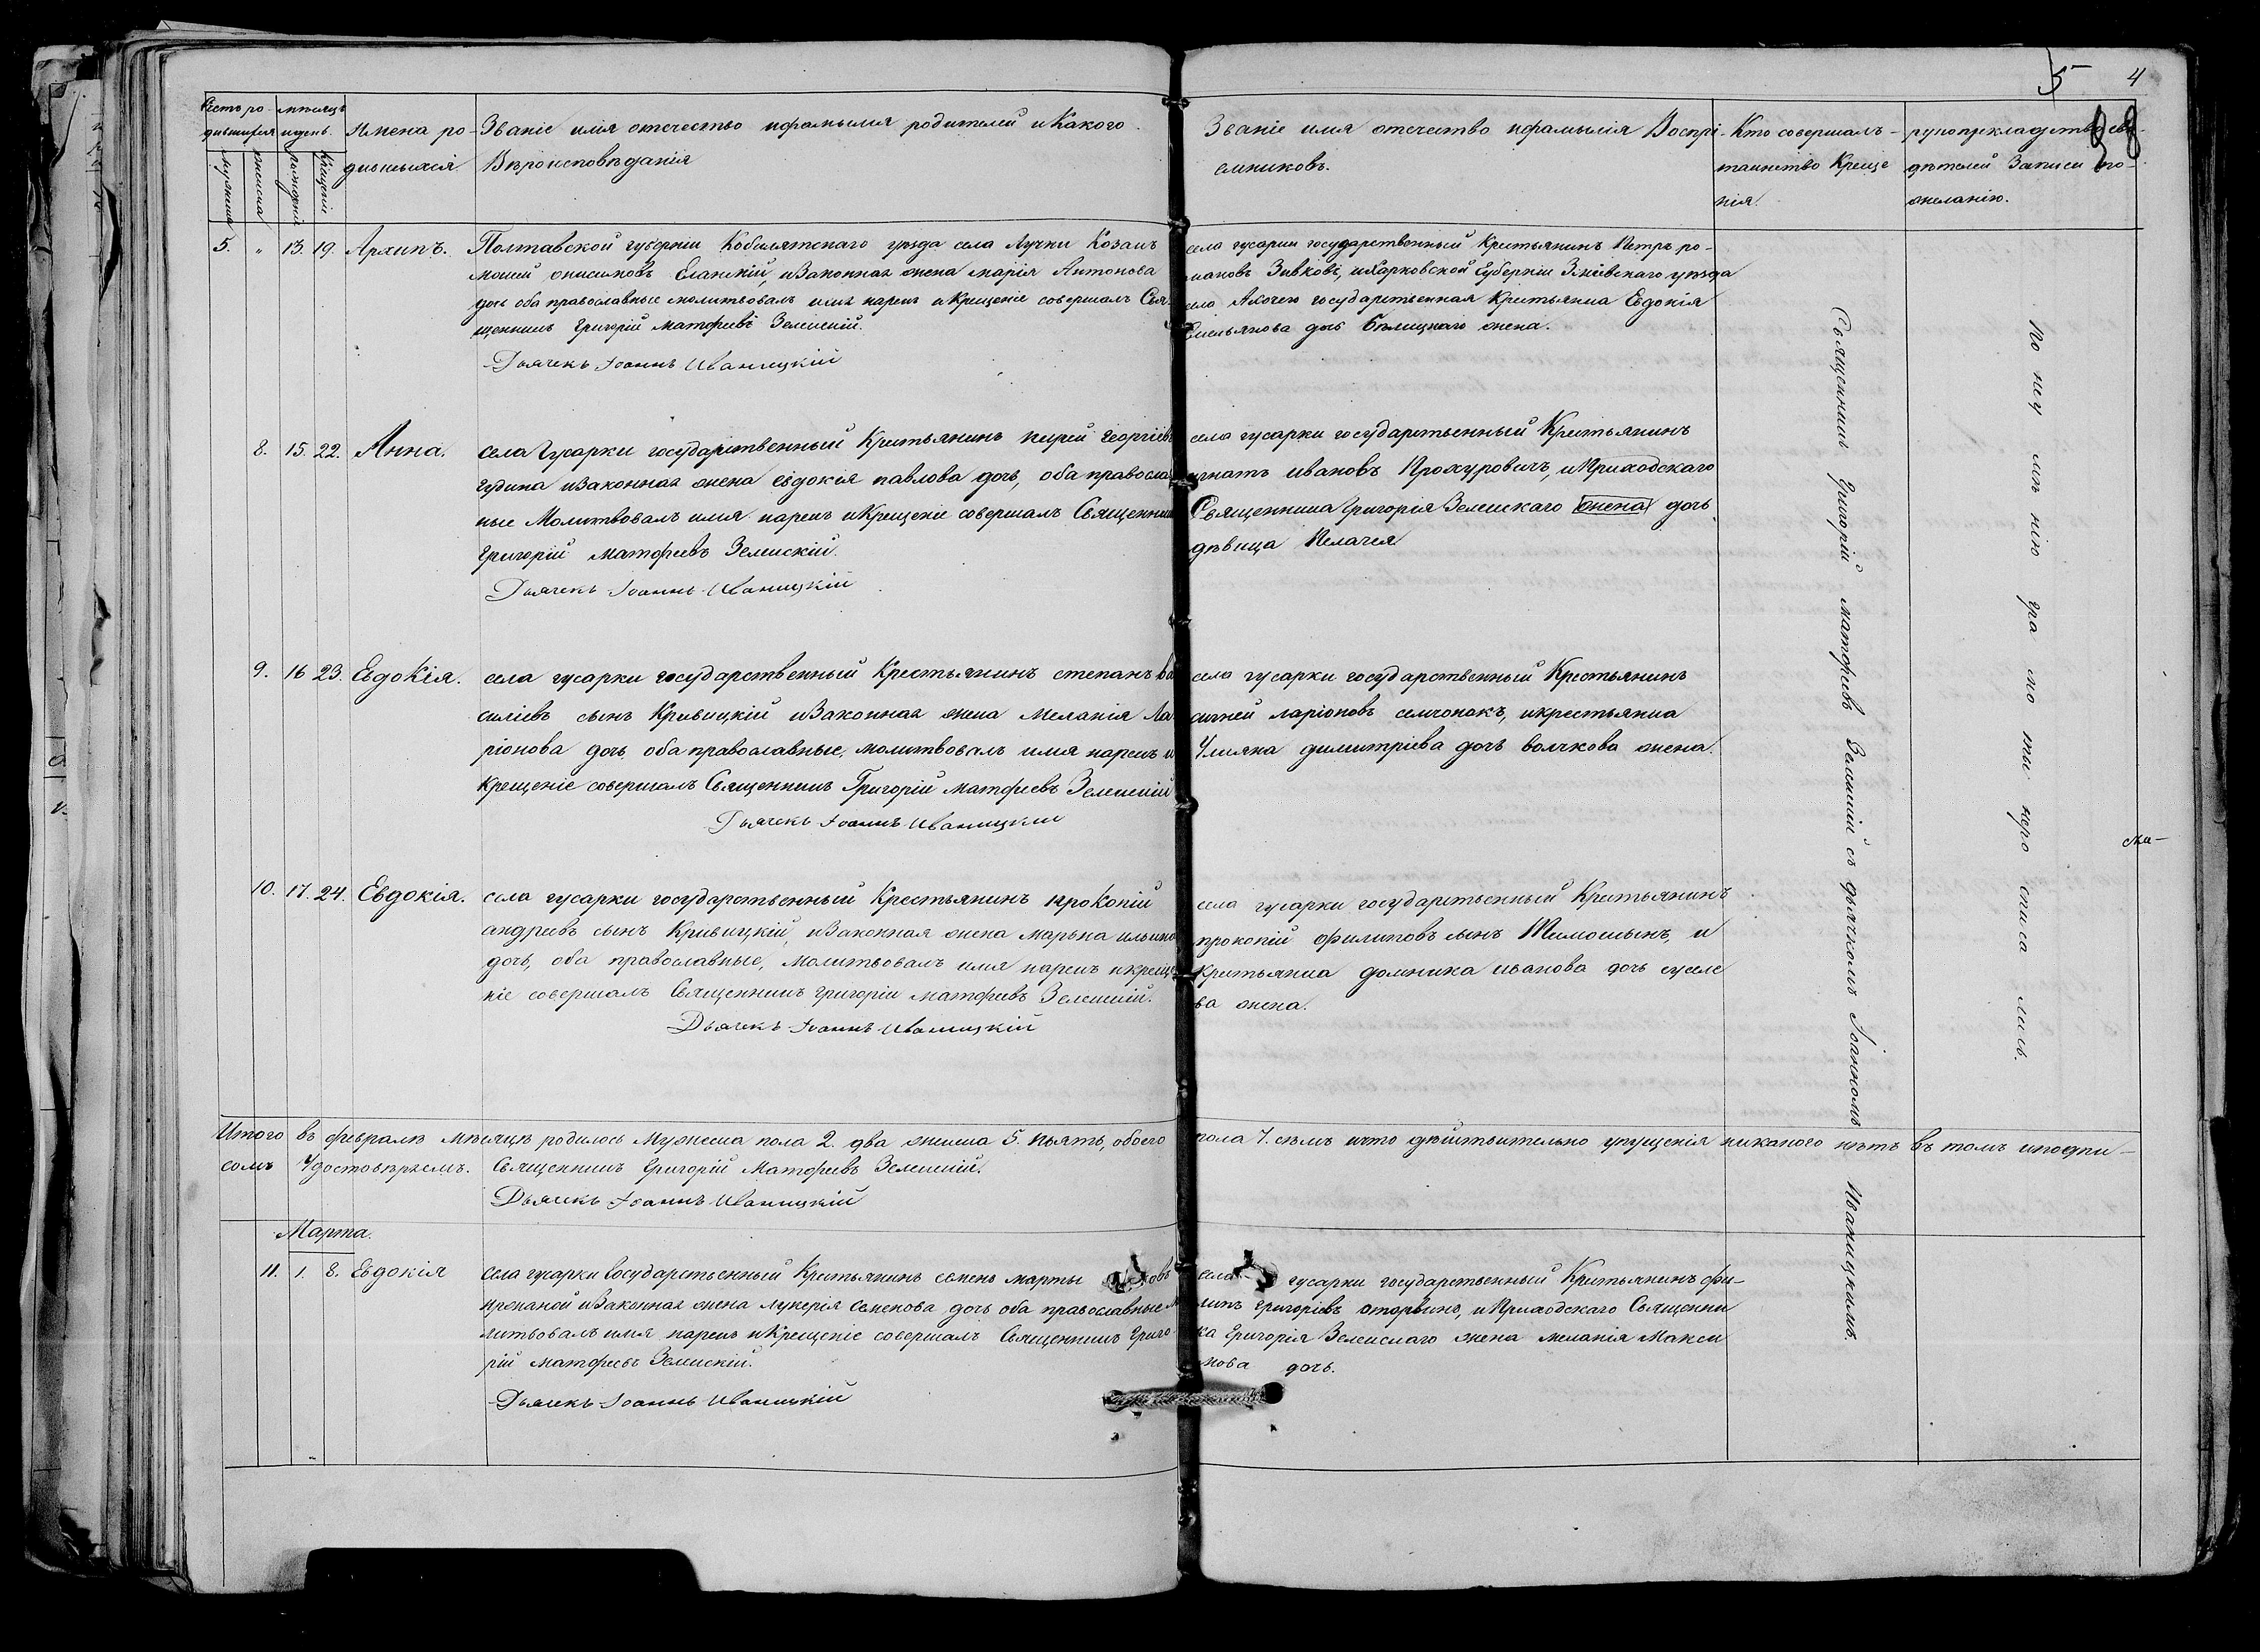 5 4
38
Счетъ ро- мѣсяцъ
дившихся и день. Имена ро- Званіе имя отечество и фамилія родителей и Какого
дившихся. Вѣроисповѣданія
мужеска женска рожденія Крещенія
Званіе имя отечество и фамилія Воспрі-
емниковъ.
Кто совершалъ
таинство Креще
нія.
рукоприкладство сви-
дѣтелей Записи по
желанію.
5. „ 13. 19. Архипъ. Полтавской губерніи Кобилятскаго уѣзда села Лучки Козакъ
онисимовъ Еланскій, и Законная жена марія Антонова
дочь оба православные молитвовалъ имя нарекъ и Крещеніе совершалъ Свя-
щенникъ Григорій матфеевъ Зеленскій.
Дьячекъ Іоаннъ Иваницкій
села гусарки государственный Крестьянинъ Петръ ро-
мановъ Зивковъ, и Харковской Губерніи Зміевскаго уѣзда
село Ахочего государственная Крестьянка Евдокія
Емельянова дочь Бѣлицкаго жена.
8. 15. 22. Анна. села Гусарки государственный Крестьянинъ кирей георгіевъ
гудина и Законная жена евдокія павлова дочь, оба правосла
ные Молитвовалъ имя нарекъ и Крещеніе совершалъ Священникъ
Григорій матфеевъ Зеленскій.
Дьячекъ Іоаннъ Иваницкій
села гусарки государственный Крестьянинъ
игнатъ ивановъ Прохуровичъ, и Приходскаго
Священника Григорія Зеленскаго жена дочь
дѣвица Пелагея
9. 16 23. Евдокія. села гусарки государственный Крестьянинъ степанъ ва
силіевъ сынъ Кривицкій и Законная жена Меланія Ла
ріонова дочь оба православные, молитвовалъ имя нарекъ и
крещеніе совершалъ Священникъ Григорій матфеевъ Зеленскій
Дьячекъ Іоаннъ Иваницкій
села гусарки государственный Крестьянинъ
ларіоновъ семчонокъ, и крестьянка
Улияна димитріева дочь волчкова жена.
10. 17. 24. Евдокія. села гусарки государственный Крестьянинъ прокопій
андреевъ сынъ Кривицкій, и Законная жена марьна ильина
дочь, оба православные, молитвовалъ имя нарекъ и креще
ніе совершалъ Священникъ григорій матфеевъ Зеленскій.
Дьячекъ Іоаннъ Иваницкій
села гусарки государственный Крестьянинъ
прокопій филиповъ сынъ Тимошынъ, и
крестьянка домника иванова дочь сусле
ва жена.
Священникъ Григорій матфеевъ Зеленскій съ дьячкомъ Іоанномъ Иваницкимъ.
По неу мѣ нію гра мо ты неро списа лись.
Итого въ февралѣ мѣсяцѣ родилось Мужеска пола 2. два женска 5. пьять, обоего пола 7. сѣмъ и что дѣйствительно упущенія никакого нѣтъ въ томъ и подпи-
сомъ Удостовѣряемъ. Священникъ Григорій Матфеевъ Зеленскій.
Дьячекъ Іоаннъ Иваницкій
Марта.
11. 1. 8. Евдокія села гусарки государственный Крестьянинъ семенъ марты овъ
и Законная жена лукерія семенова дочь оба православные мо
литвовалъ имя нарекъ и Крещеніе совершалъ Священникъ Григо
рій матфеевъ Зеленскій.
Дьячекъ Іоаннъ Иваницкій
села гусарки государственный Крестьянинъ фи-
липъ григоріевъ оторвино, и Приходскаго Священни
ка Григорія Зеленскаго жена мелания Макси
мова дочь.